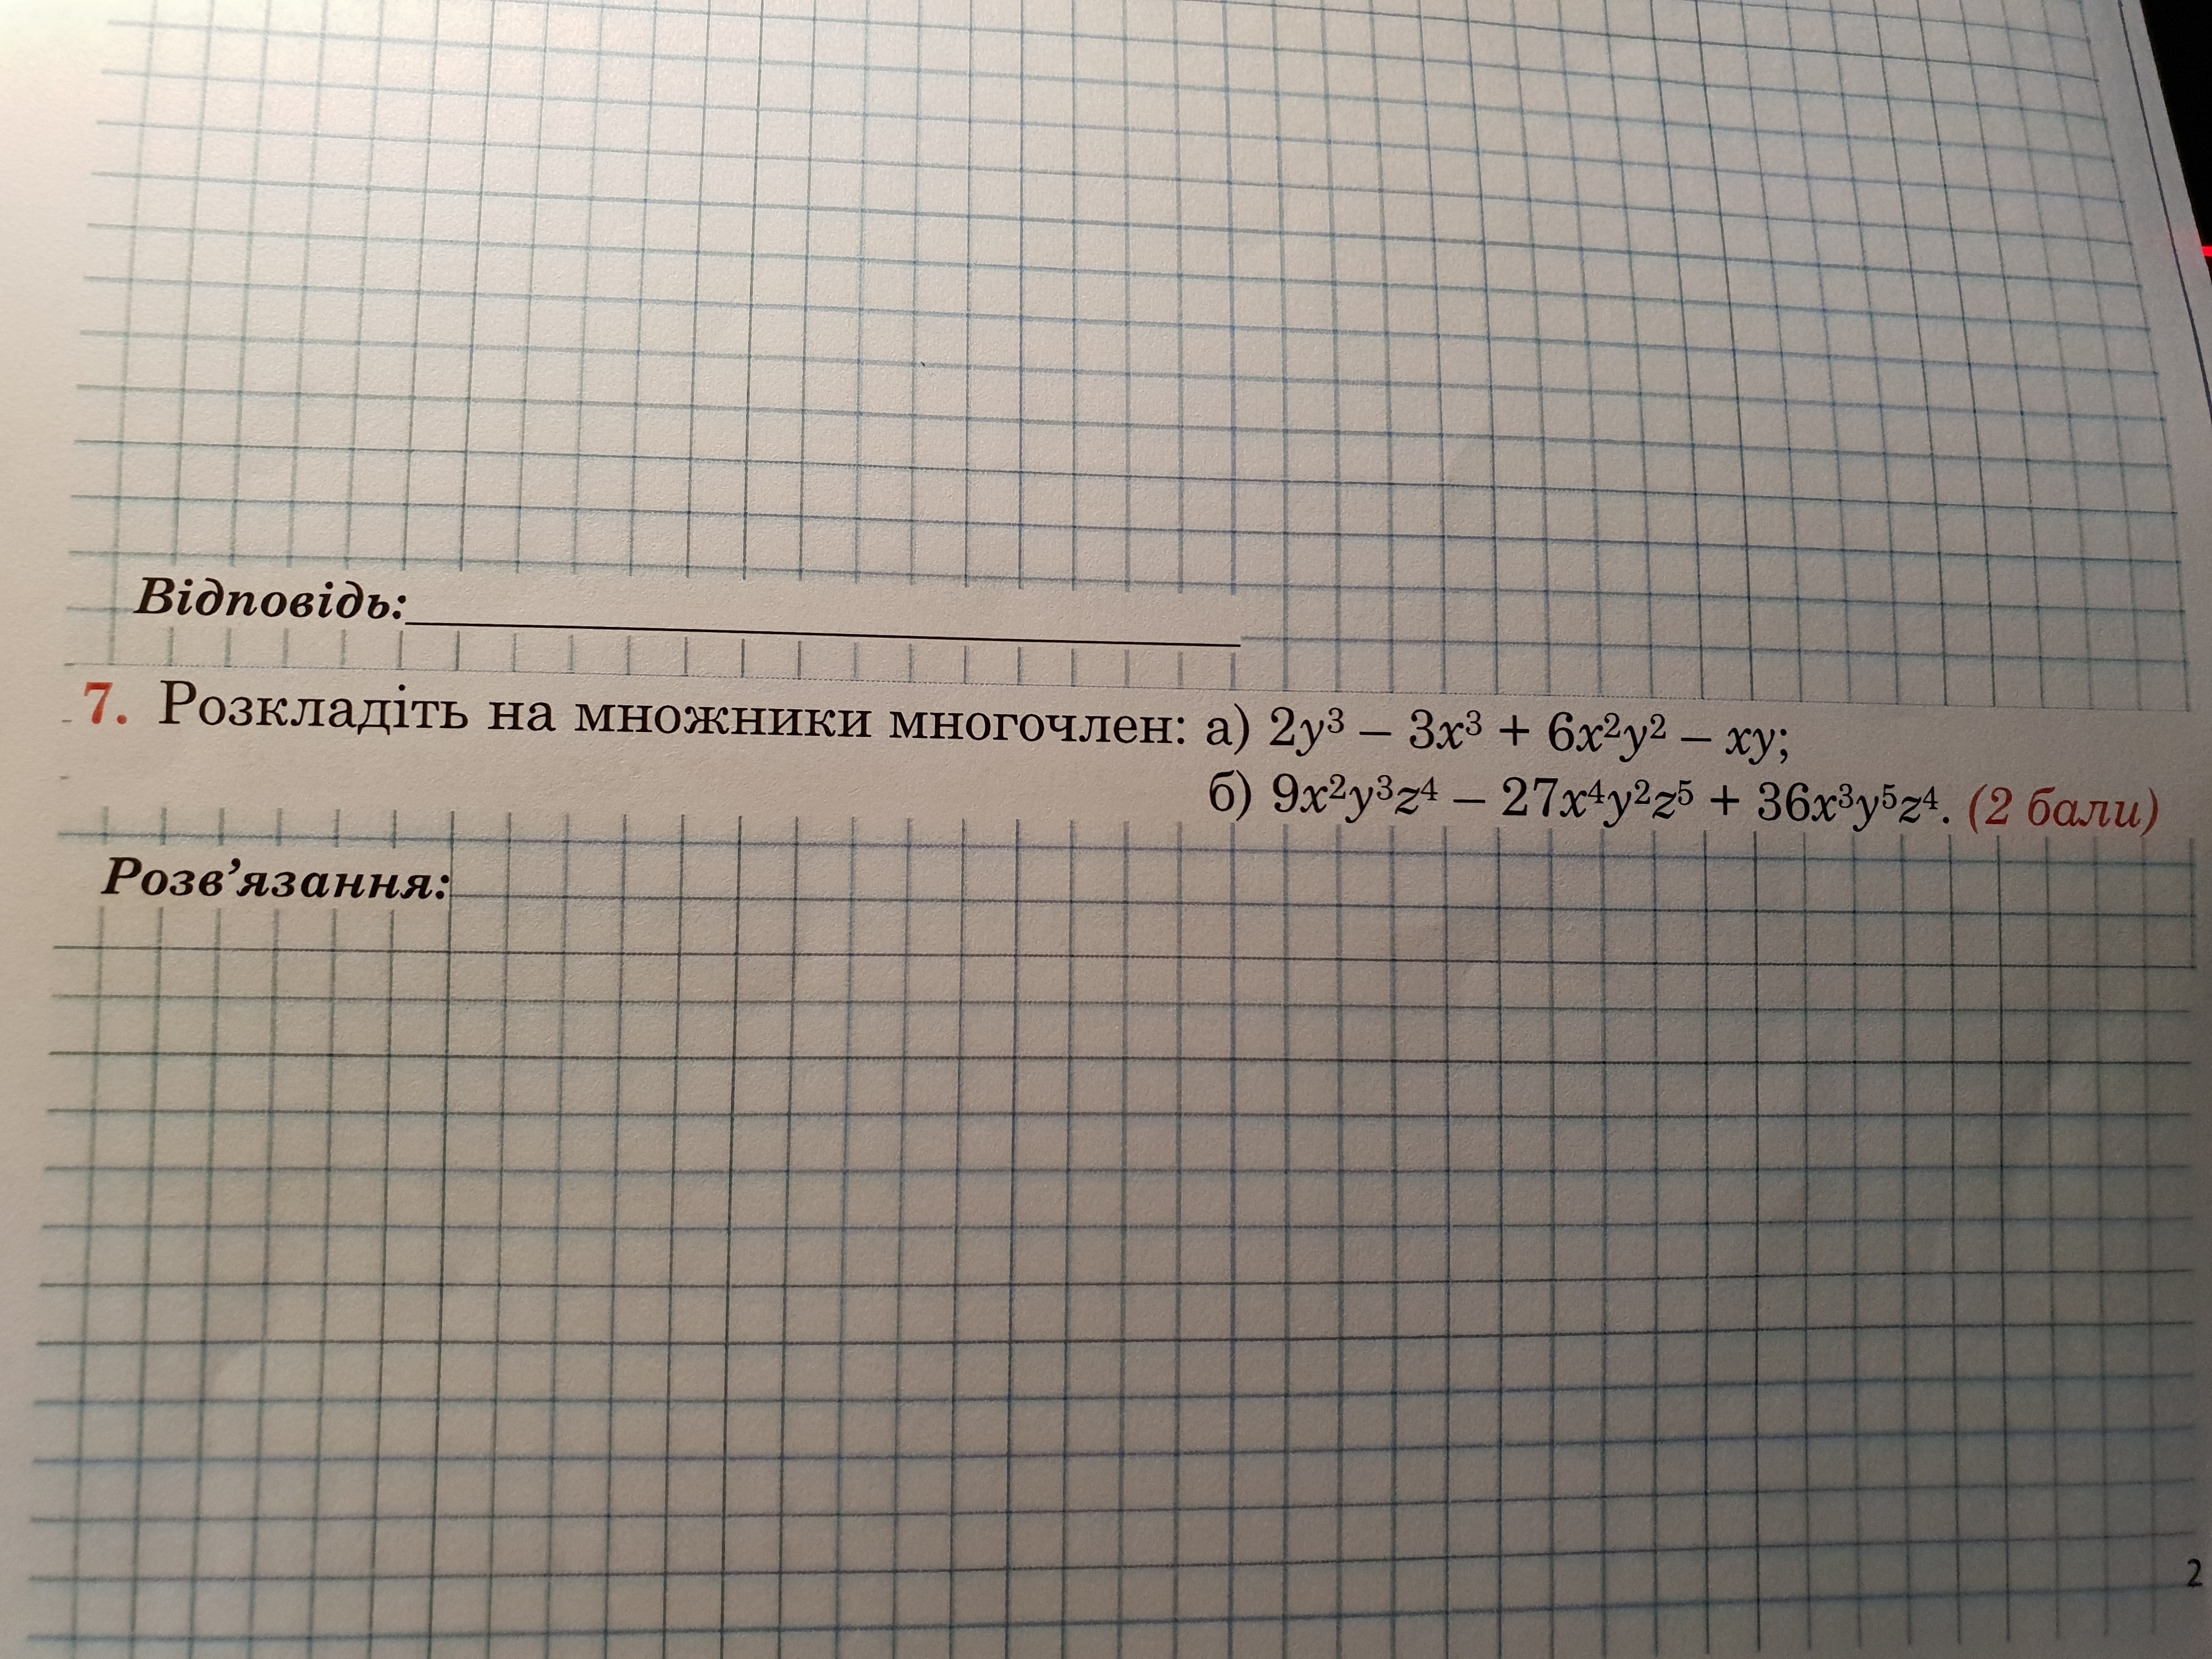 Відповідь:
7. Розкладіть на множники многочлен: а) 2y³ – 3x³ + 6x²y² – xy;
б) 9x²y³z⁴ – 27x⁴y²z⁵ + 36x³y⁵z⁴. (2 бали)
Розв’язання:
2